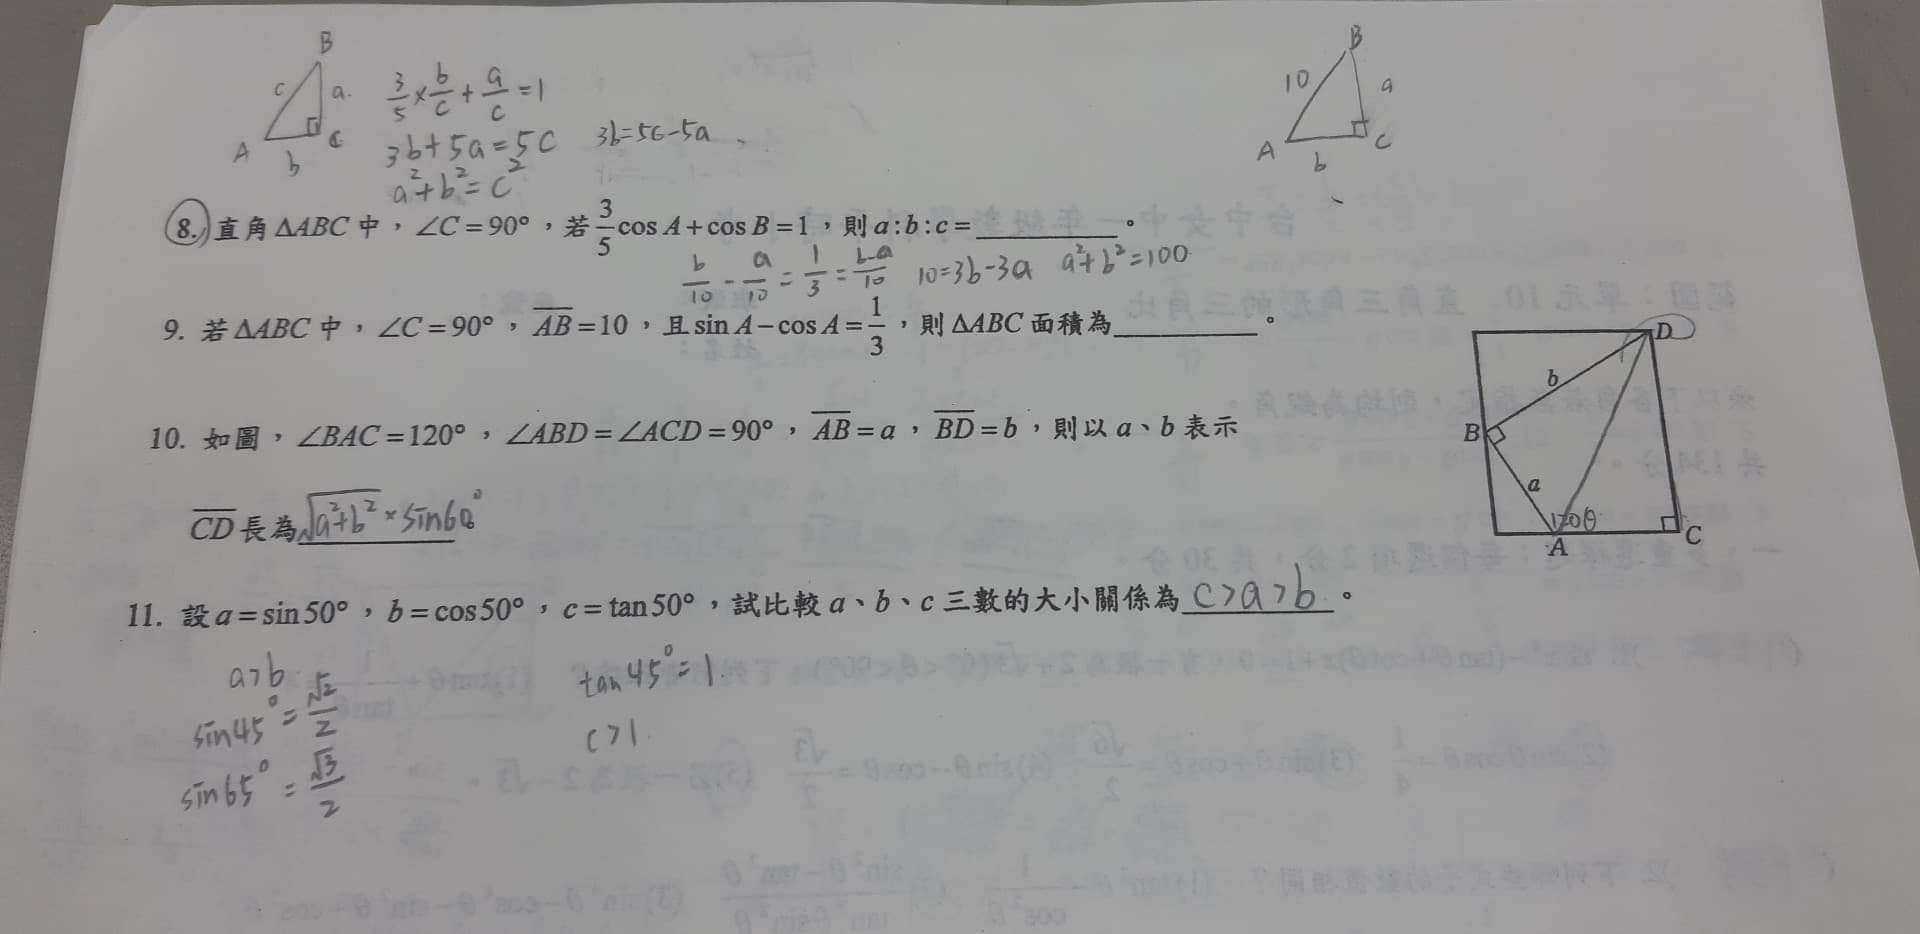 B
c a.
A b C
3/5 × b/c + a/c = 1
3b+5a=5C 3b=5c-5a
a²+b²=c²
B
10 a
A b C
8. 直角 ΔABC 中，∠C=90°，若 3/5 cos A+cos B=1，則 a:b:c=________。
b/10 - a/10 = 1/3 = b-a/10 10=3b-3a a²+b²=100
9. 若 ΔABC 中，∠C=90°，A̅B̅=10，且 sin A−cos A=1/3，則 ΔABC 面積為________。
10. 如圖，∠BAC=120°，∠ABD=∠ACD=90°，A̅B̅=a，B̅D̅=b，則以 a、b 表示
C̅D̅ 長為 √a²+b² × sin60° 。
D
b
B
a
120θ
A
C
11. 設 a=sin50°，b=cos50°，c=tan50°，試比較 a、b、c 三數的大小關係為 c>a>b 。
a>b
sin45°=√2/2
sin65°=√3/2
tan45°=1.
c>1